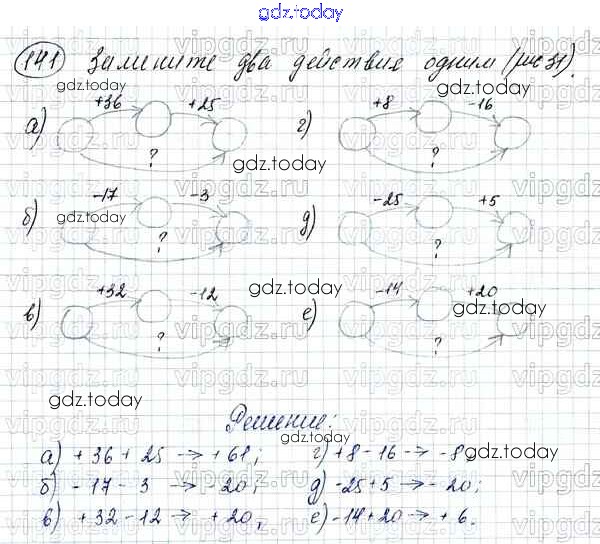 gdz.today
141 Замените два действия одним (рис 31).
gdz.today
а) +36 +25 ?
г) +8 -16 ?
gdz.today
б) -17 -3 ?
gdz.today
д) -25 +5 ?
gdz.today
в) +32 -12 ?
gdz.today
е) -14 +20 ?
gdz.today
gdz.today
Решение:
gdz.today
а) +36+25 → +61;
г) +8-16 → -8;
б) -17-3 → -20;
gdz.today
д) -25+5 → -20;
gdz.today
в) +32-12 → +20;
е) -14+20 → +6.
vipgdz.ru